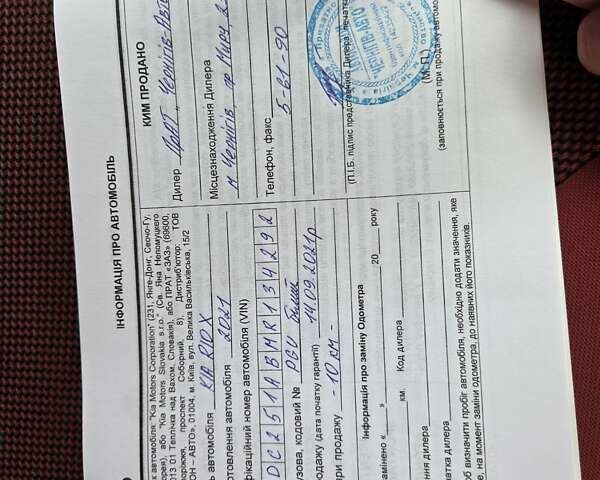 ІНФОРМАЦІЯ ПРО АВТОМОБІЛЬ
автомобіля: "Kia Motors Corporation" (231, Янгє-Донг, Сеочо-Гу,
або "Kia Motors Slovakia s.r.o." (Св. Яна Непомуцкего
013 01 Теплічка над Вахом, Словакія), або ПРАТ «ЗАЗ» (69600,
проспект Соборний, 8). Дистриб'ютор: ТОВ
АВТО», 01004, м. Київ, вул. Велика Васильківська, 15/2
автомобіля KIA RIO X
автомобіля 2021
номер автомобіля (VIN)
DC251ABMR134292
кодовий № PGU білий
(дата початку гарантії) 14.09.2021р
при продажу - 10 КМ -
Інформація про заміну Одометра
« » 20 року
км. Код дилера
дилера
дилера
визначити пробіг автомобіля, необхідно додати значення, яке
на момент заміни одометра, до наявних його показників.
КИМ ПРОДАНО
Дилер ПрАТ „Чернігів-Авто
Місцезнаходження Дилера
м Чернігів пр Миру
Телефон, факс
5-61-90
(П.І.Б. підпис представника Дилера, печатка
(М.П.)
(заповнюється при продажу